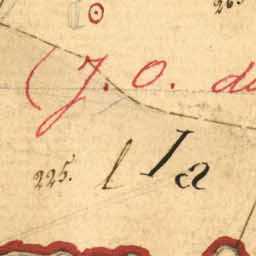 265
(J. O. de
225. l Ia